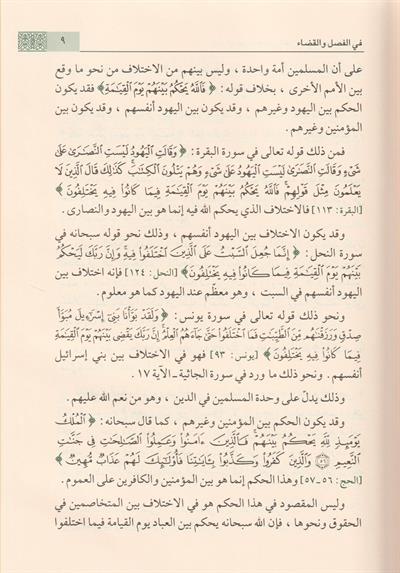 في الفصل والقضاء
٩
على أن المسلمين أمة واحدة ، وليس بينهم من الاختلاف من نحو ما وقع
بين الأمم الأخرى ، بخلاف قوله : ﴿ فَٱللَّهُ يَحْكُمُ بَيْنَهُمْ يَوْمَ ٱلْقِيَـٰمَةِ ﴾ فقد يكون
الحكم بين اليهود وغيرهم ، وقد يكون بين اليهود أنفسهم ، وقد يكون بين
المؤمنين وغيرهم .
فمن ذلك قوله تعالى في سورة البقرة : ﴿ وَقَالَتِ ٱلْيَهُودُ لَيْسَتِ ٱلنَّصَـٰرَىٰ عَلَىٰ
شَىْءٍ وَقَالَتِ ٱلنَّصَـٰرَىٰ لَيْسَتِ ٱلْيَهُودُ عَلَىٰ شَىْءٍ وَهُمْ يَتْلُونَ ٱلْكِتَـٰبَ ۗ كَذَٰلِكَ قَالَ ٱلَّذِينَ لَا
يَعْلَمُونَ مِثْلَ قَوْلِهِمْ ۚ فَٱللَّهُ يَحْكُمُ بَيْنَهُمْ يَوْمَ ٱلْقِيَـٰمَةِ فِيمَا كَانُوا۟ فِيهِ يَخْتَلِفُونَ ﴾
[البقرة : ١١٣] فالاختلاف الذي يحكم الله فيه إنما هو بين اليهود والنصارى .
وقد يكون الاختلاف بين اليهود أنفسهم ، وذلك نحو قوله سبحانه في
سورة النحل : ﴿ إِنَّمَا جُعِلَ ٱلسَّبْتُ عَلَى ٱلَّذِينَ ٱخْتَلَفُوا۟ فِيهِ ۚ وَإِنَّ رَبَّكَ لَيَحْكُمُ
بَيْنَهُمْ يَوْمَ ٱلْقِيَـٰمَةِ فِيمَا كَانُوا۟ فِيهِ يَخْتَلِفُونَ ﴾ [النحل : ١٢٤] فإنه اختلاف بين
اليهود أنفسهم في السبت ، وهو معظّم عند اليهود كما هو معلوم .
ونحو ذلك قوله تعالى في سورة يونس : ﴿ وَلَقَدْ بَوَّأْنَا بَنِىٓ إِسْرَٰٓءِيلَ مُبَوَّأَ
صِدْقٍ وَرَزَقْنَـٰهُم مِّنَ ٱلطَّيِّبَـٰتِ فَمَا ٱخْتَلَفُوا۟ حَتَّىٰ جَآءَهُمُ ٱلْعِلْمُ ۚ إِنَّ رَبَّكَ يَقْضِى بَيْنَهُمْ يَوْمَ ٱلْقِيَـٰمَةِ
فِيمَا كَانُوا۟ فِيهِ يَخْتَلِفُونَ ﴾ [يونس : ٩٣] فهو في الاختلاف بين بني إسرائيل
أنفسهم . ونحو ذلك ما ورد في سورة الجاثية-الآية ١٧ .
وذلك يدلّ على وحدة المسلمين في الدين ، وهو من نعم الله عليهم .
وقد يكون الحكم بين المؤمنين وغيرهم ، كما قال سبحانه : ﴿ ٱلْمُلْكُ
يَوْمَئِذٍ لِّلَّهِ يَحْكُمُ بَيْنَهُمْ ۚ فَٱلَّذِينَ ءَامَنُوا۟ وَعَمِلُوا۟ ٱلصَّـٰلِحَـٰتِ فِى جَنَّـٰتِ
ٱلنَّعِيمِ ۝٥٦ وَٱلَّذِينَ كَفَرُوا۟ وَكَذَّبُوا۟ بِـَٔايَـٰتِنَا فَأُو۟لَـٰٓئِكَ لَهُمْ عَذَابٌ مُّهِينٌ ﴾
[الحج : ٥٦-٥٧] وهذا الحكم إنما هو بين المؤمنين والكافرين على العموم .
وليس المقصود في هذا الحكم هو في الاختلاف بين المتخاصمين في
الحقوق ونحوها ، فإن الله سبحانه يحكم بين العباد يوم القيامة فيما اختلفوا